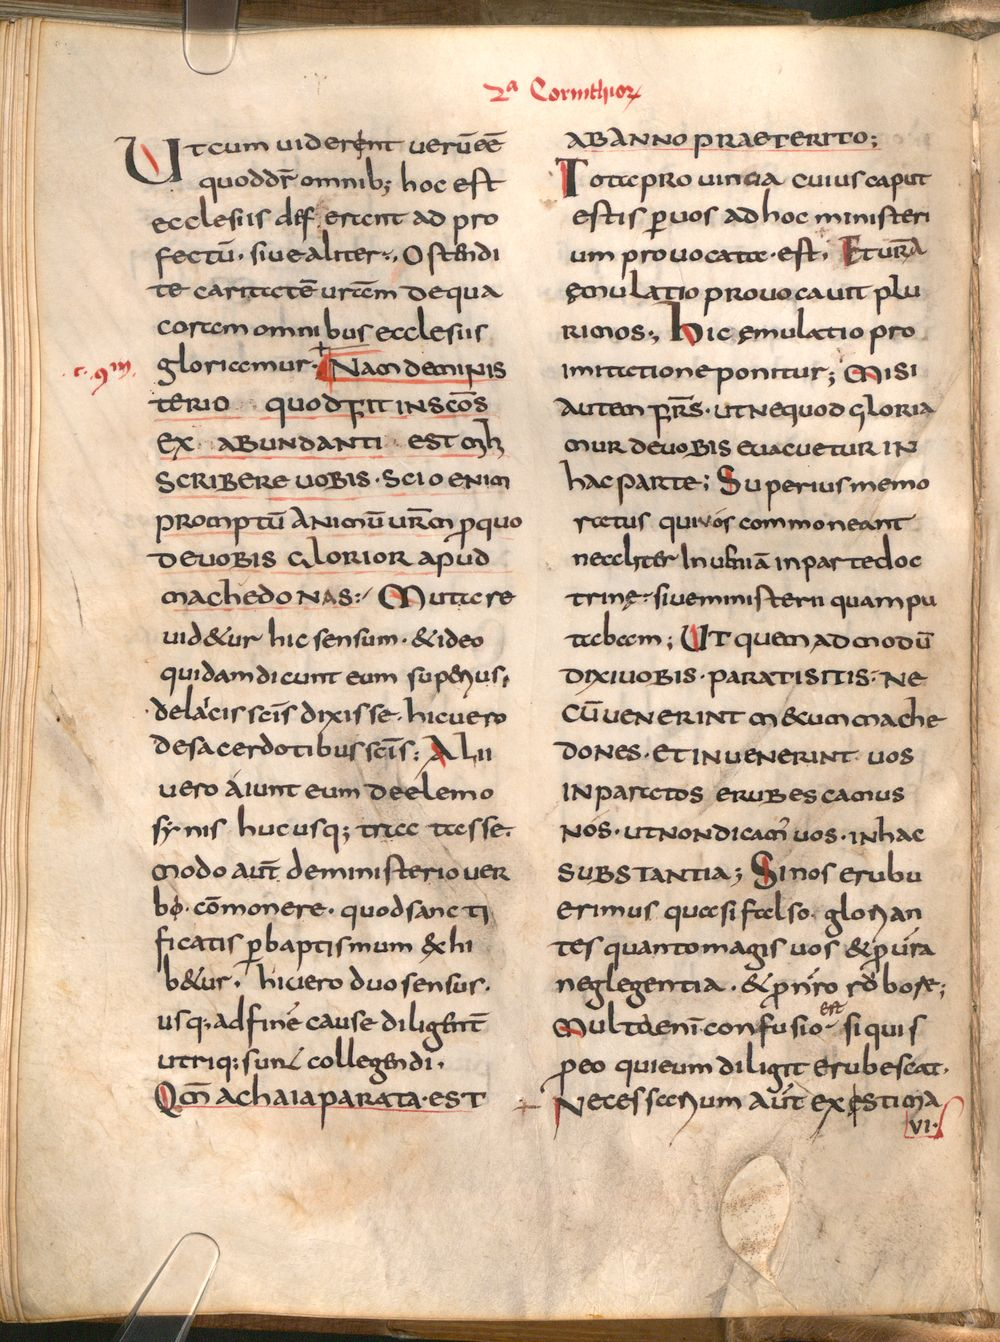 2ª Corinthior
Ut cum uiderent uerū eē
quod dr̄ omnib; hoc est
ecclesiis diff erent ad pro
fectū · siue aliter · Ostendi
te caritatē urām de qua
coram omnibus ecclesiis
gloriamur · Nam de minis
c. 9m
terio quod fit in scōs
ex abundanti est mh
scribere uobis · scio enim
promptū animū urm̄ p quo
de uobis glorior apud
machedonas : Mutare
uid&ur hic sensum · & ideo
quidam dicunt eum superius,
de laicis scīs dixisse · hic uero
de sacerdotibus scīs : Alii
uero aiunt eum de elemo
synis huc usq; tractasse ·
modo aut̄ de ministerio uer
bo · cōmonere · quod sancti
ficatis p baptismum exhi
b&ur · hi uero duo sensus ·
usq; ad finē cause diligent̄
utriq; sunt collegendi ·
Qm̄ achaia parata · est
ab anno praeterito;
Tota prouincia cuius caput
estis p uos ad hoc ministeri
um prouocata · est · Et ur̄a
emulatio prouocauit plu
rimos; hic emulatio pro
imitatione ponitur; Misi
autem frs̄ · ut ne quod gloria
mur de uobis euacuetur in
hac parte; Superius memo
ratus qui uos commoneant
ne aliter Inueniā in parte doc
trine · siue ministerii quam pu
tabam; Ut quem admodū
dixi uobis · parati sitis · Ne
cū uenerint m&um mache
dones · et inuenerint uos
inparatos erubescamus
nos · ut non dicam' uos · in hac
substantia; Si nos erubu
erimus quasi falso glorian
tes quanto magis uos & p ur̄a
neglegentia · & p nr̄o rubore;
Multa eni confusio est si quis
p eo quieum diligit erubescat ·
Necessarium aut existima
VI ·